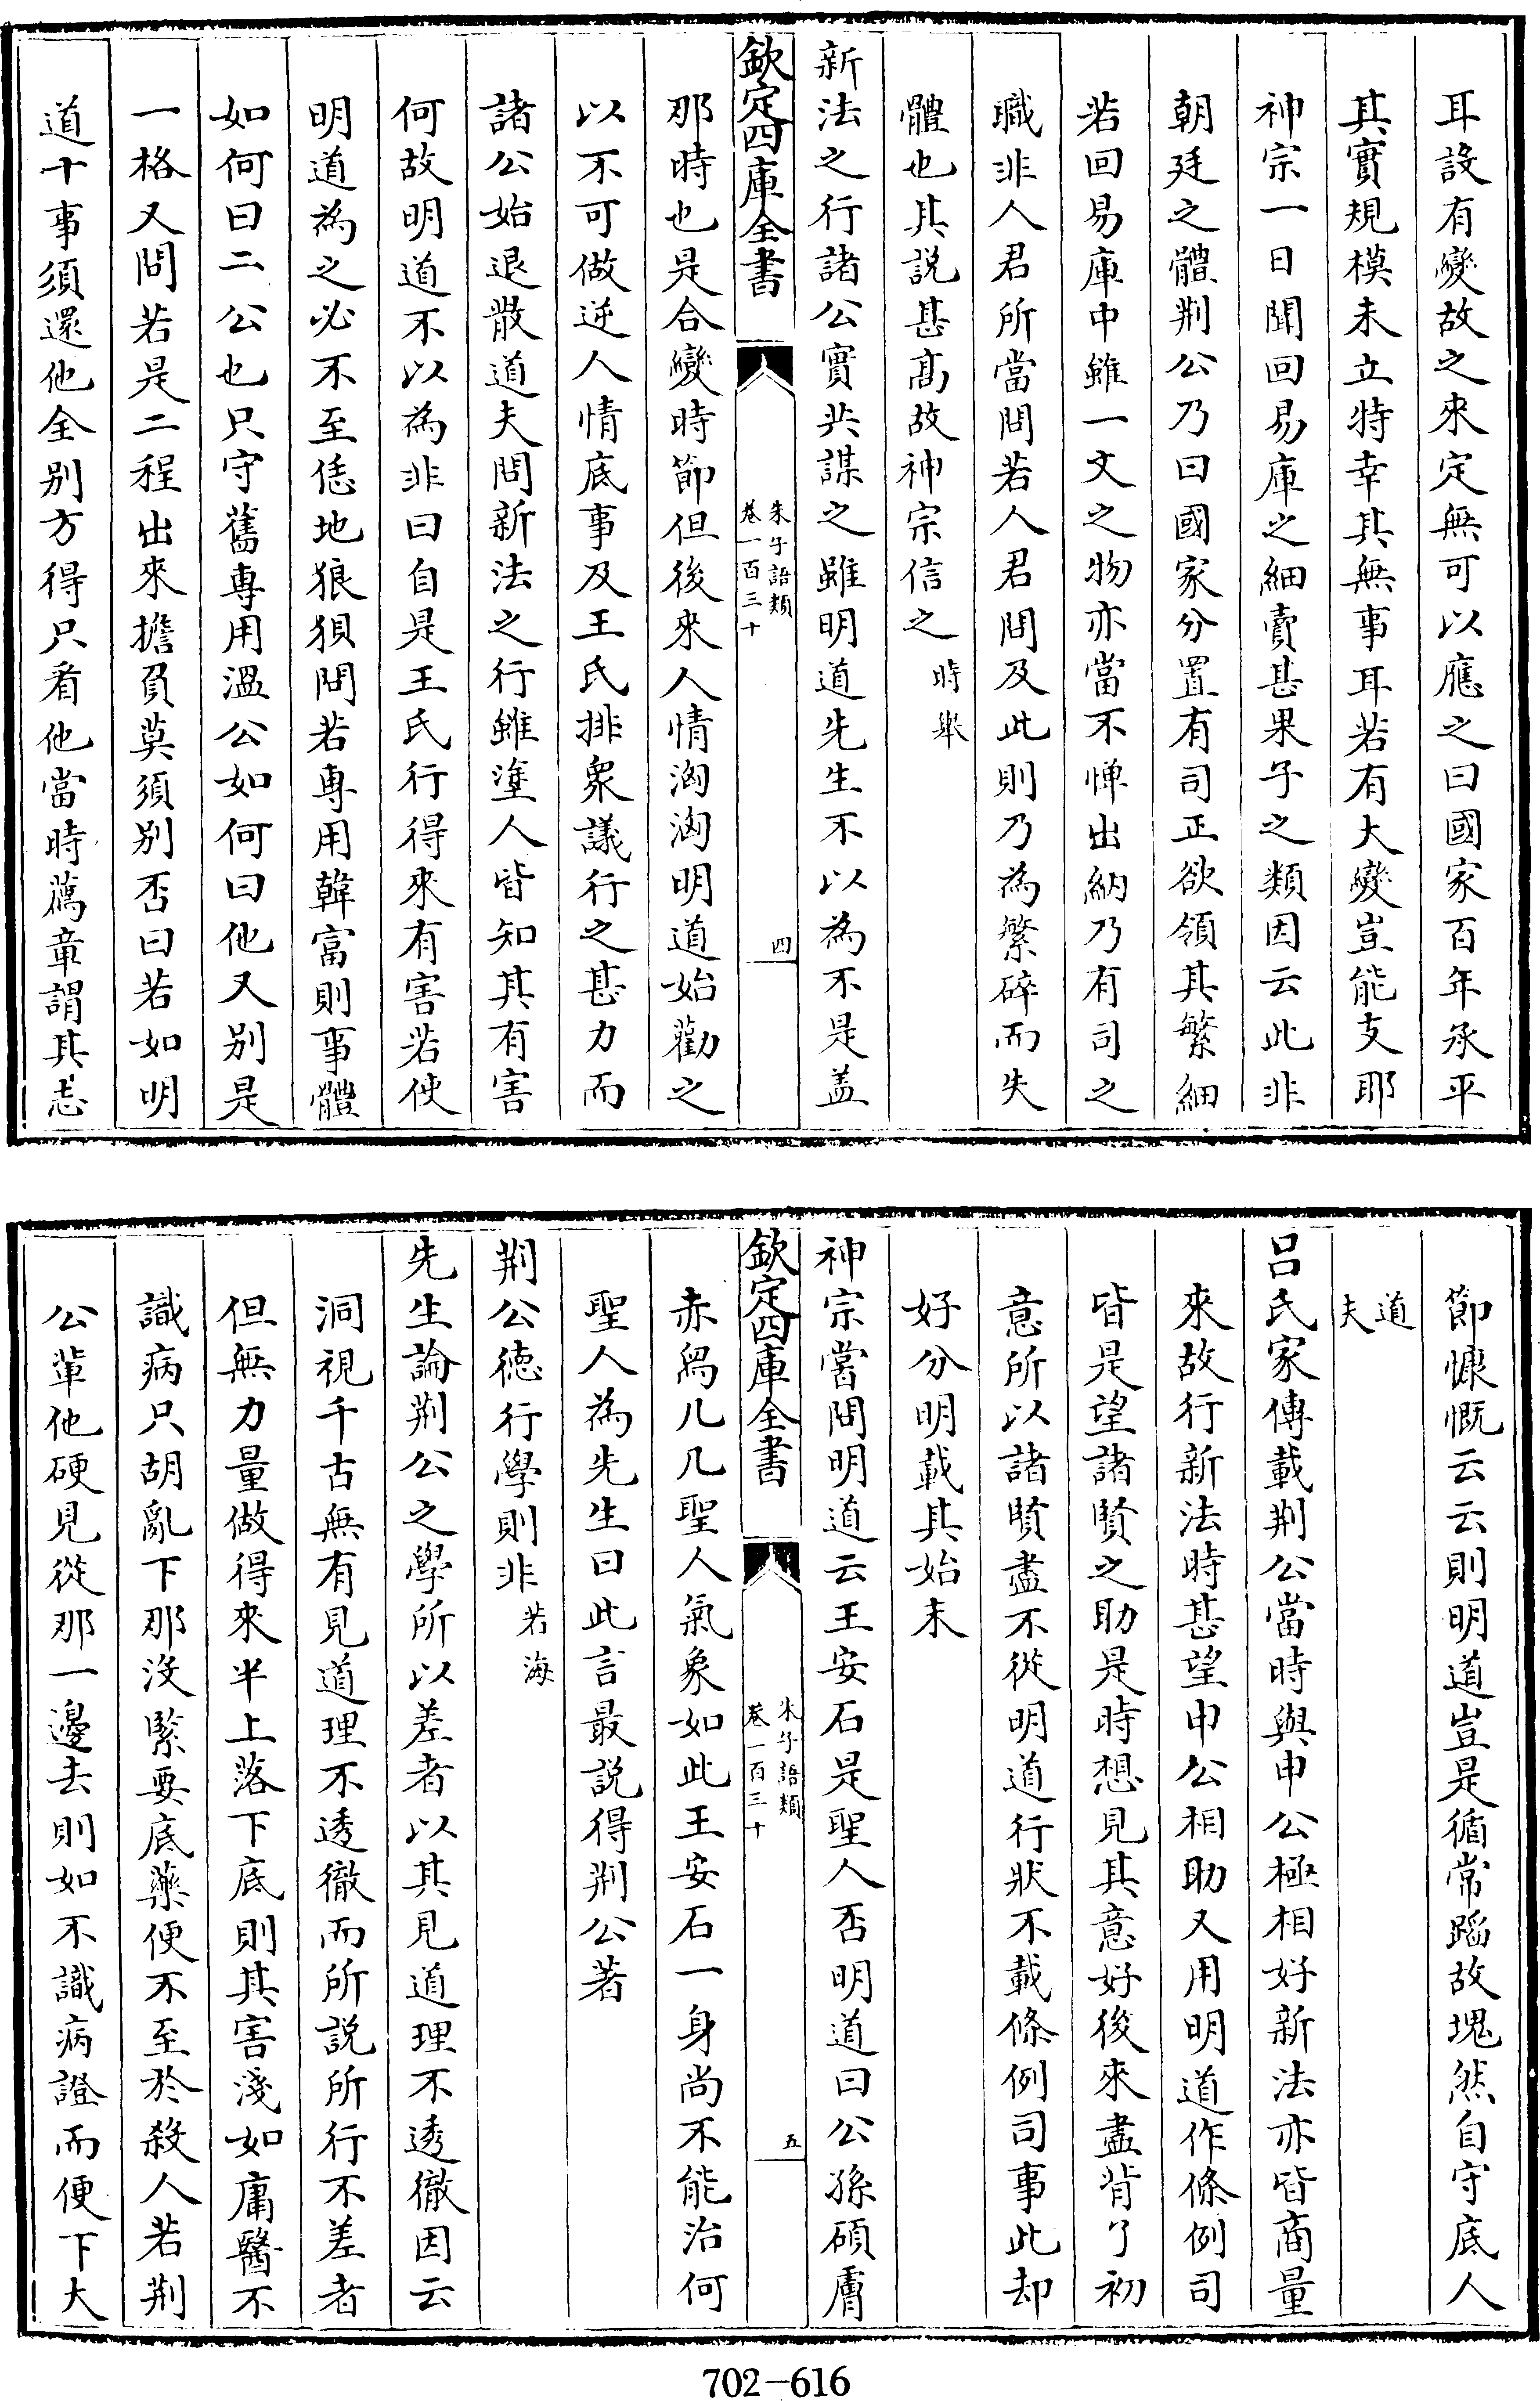 耳設有變故之來定無可以應之曰國家百年承平
其實規模未立特幸其無事耳若有大變豈能支耶
神宗一日聞回易庫之細賣甚果子之類因云此非
朝廷之體荆公乃曰國家分置有司正欲領其繁細
若回易庫中雖一文之物亦當不憚出納乃有司之
職非人君所當問若人君問及此則乃為繁碎而失
體也其説甚髙故神宗信之時舉
新法之行諸公實共謀之雖明道先生不以為不是盖
欽定四庫全書
朱子語類
卷一百三十
四
那時也是合變時節但後來人情洶洶明道始勸之
以不可做逆人情底事及王氏排衆議行之甚力而
諸公始退散道夫問新法之行雖塗人皆知其有害
何故明道不以為非曰自是王氏行得來有害若使
明道為之必不至恁地狼狽問若専用韓富則事體
如何曰二公也只守舊専用溫公如何曰他又别是
一格又問若是二程出來擔負莫須别否曰若如明
道十事須還他全别方得只看他當時薦章謂其志
節慷慨云云則明道豈是循常蹈故塊然自守底人
道夫
吕氏家傳載荆公當時與申公極相好新法亦皆商量
來故行新法時甚望申公相助又用明道作條例司
皆是望諸賢之助是時想見其意好後來盡背了初
意所以諸賢盡不從明道行狀不載條例司事此却
好分明載其始末
神宗嘗問明道云王安石是聖人否明道曰公孫碩膚
欽定四庫全書
朱子語類
卷一百三十
五
赤舄几几聖人氣象如此王安石一身尚不能治何
聖人為先生曰此言最説得荆公著
荆公徳行學則非若海
先生論荆公之學所以差者以其見道理不透徹因云
洞視千古無有見道理不透徹而所説所行不差者
但無力量做得來半上落下底則其害淺如庸醫不
識病只胡亂下那沒緊要底藥便不至於殺人若荆
公輩他硬見從那一邊去則如不識病證而便下大
702-616